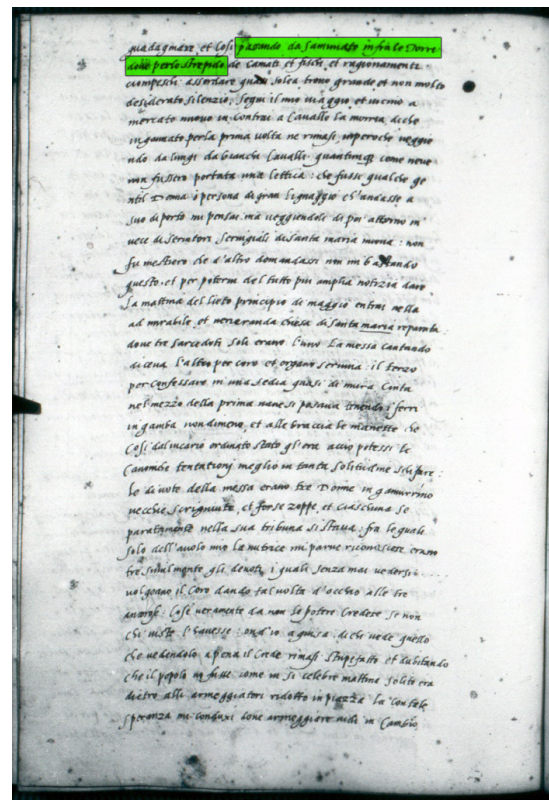 guadagniare et cosi passando da Samminiato infra le Torre
doue per lo strepido de Camati et fischi, et ragionamenti
ciompeschi assordare quasi solea trouo grande et non molto
desiderato silenzio, Segui il mio viaggio et uicino a
mercato nuouo in contrai a Cauallo la morria di che
ingannato per la prima volta ne rimasi imperoche veggie
ndo da lungi da bianchi Caualli quantunq come neue
non fussero portata una lettica: che fusse qualche ge
ntil Donna o persona di gran lignaggio ch'andasse a
suo diporto mi pensai ma veggiendole di poi attorno in
vece di Seruitori Serugiali di Santa maria nuoua: non
fu mestiero che d'altro domandassi non mi bastando
questo. et per poterui del tutto piu amplia notizia dare
la mattina del lieto principio di maggio entrai nella
ad mirabile et veneranda chiesa di Santa maria repanta
doue tre Sarcedoti soli erano l'uno La messa cantando
diceua l'altro per coro et organo seruiua: il terzo
per Confessare in una Sedia quasi di mura Cinta
nel mezzo della prima naue si posaua tenendo i ferri
in gamba nondimeno, et alle braccia le manette che
Cosi dal uicario ordinato stato gl'era accio potessi le
Carnali tentationi meglio in tanta Solitudine schifare:
le diuote della messa erano tre Donne in gamurrino
vecchie scrigniute, et forse zoppe, et ciaschuna se
paratamente nella sua tribuna si staua: fra le quali
solo dell'auolo mio la nutrice mi parue riconosciere erano
tre similmente gli deuoti i quali senza mai uedersi
volgeano il Coro dando tal volta d'occhio alle tre
amorose: Cose veramente da non le potere Credere se non
chi uiste l'hauesse: ond'io a guisa di chi uede quello
che vedendolo apena il Crede rimasi stupefatto et dubitando
che il popolo in fusse come in si celebre mattina solito era
dietro alli armeggiatori ridotto in piazza la con tale
speranza mi condussi doue armeggiare uidi in Cambio